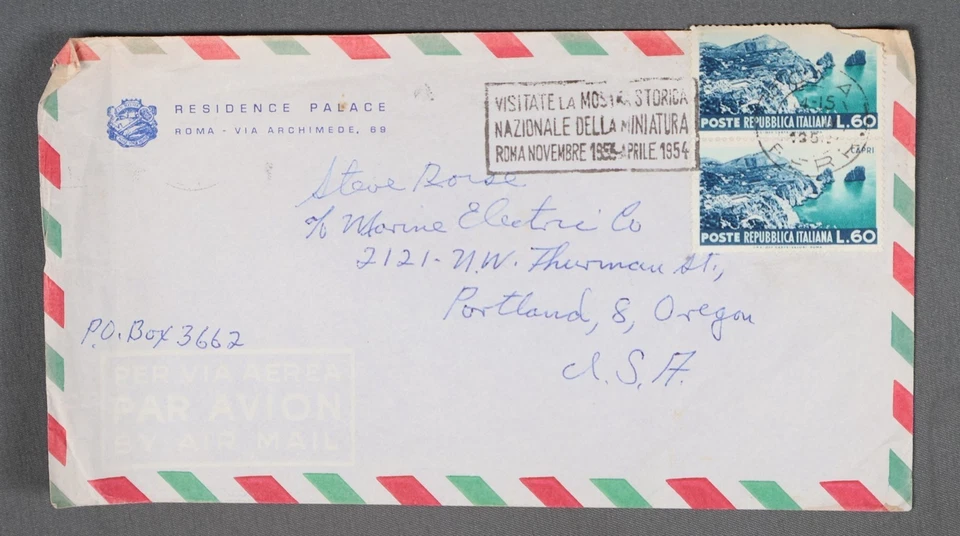 RESIDENCE PALACE
ROMA - VIA ARCHIMEDE, 69
VISITATE LA MOSTRA STORICA
NAZIONALE DELLA MINIATURA
ROMA NOVEMBRE 1953-APRILE 1954
POSTE REPUBBLICA ITALIANA L.60
CAPRI
POSTE REPUBBLICA ITALIANA L.60
Steve
c/o Marine Electric Co
2121 - N.W. Thurman St.,
Portland, 8, Oregon
U.S.A.
P.O. Box 3662
PER VIA AEREA
PAR AVION
BY AIR MAIL